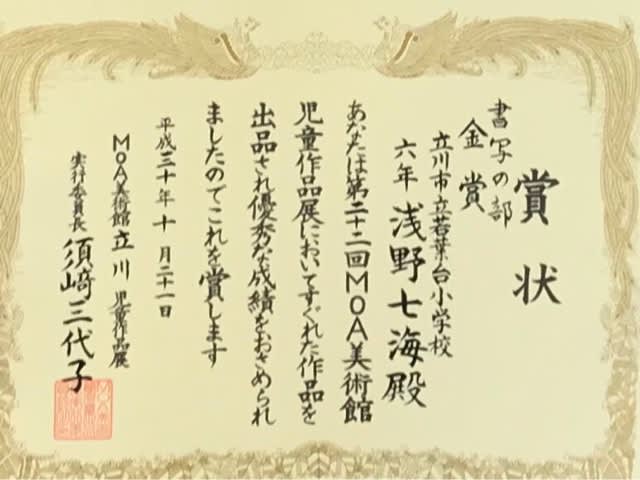 賞状
書写の部
金賞
立川市立若葉台小学校
六年 浅野七海殿
あなたは第二十二回MOA美術館
児童作品展においてすぐれた作品を
出品され優秀な成績をおさめられ
ましたのでこれを賞します
平成三十年十月二十一日
MOA美術館立川児童作品展
実行委員長 須﨑三代子